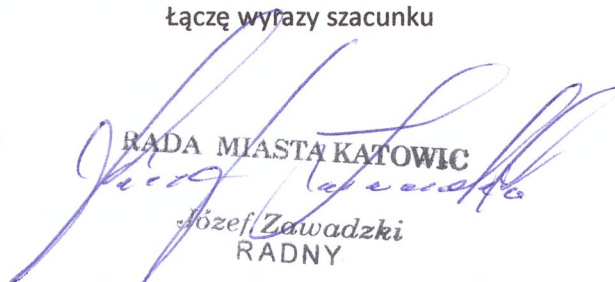 Łączę wyrazy szacunku
RADA MIASTA KATOWIC
Józef Zawadzki
RADNY